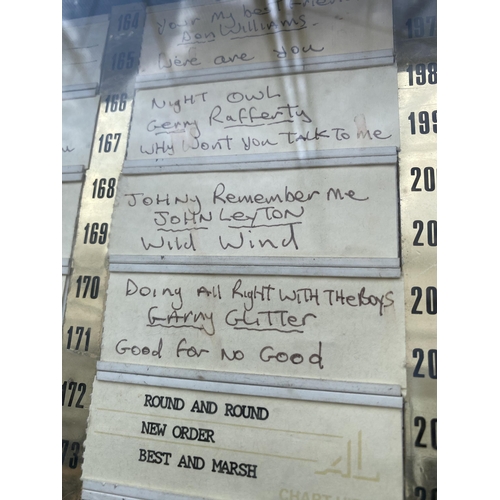 164
Your my best friend
Don Williams.
165
Were are you
166
Night Owl
Gerry Rafferty
167
Why wont you Talk To me
168
Johny Remember me
John Leyton
169
Wild Wind
170
Doing All Right With The Boys
Garny Glitter
171
Good for No Good
172
ROUND AND ROUND
NEW ORDER
173
BEST AND MARSH
197
198
199
20
20
20
20
20